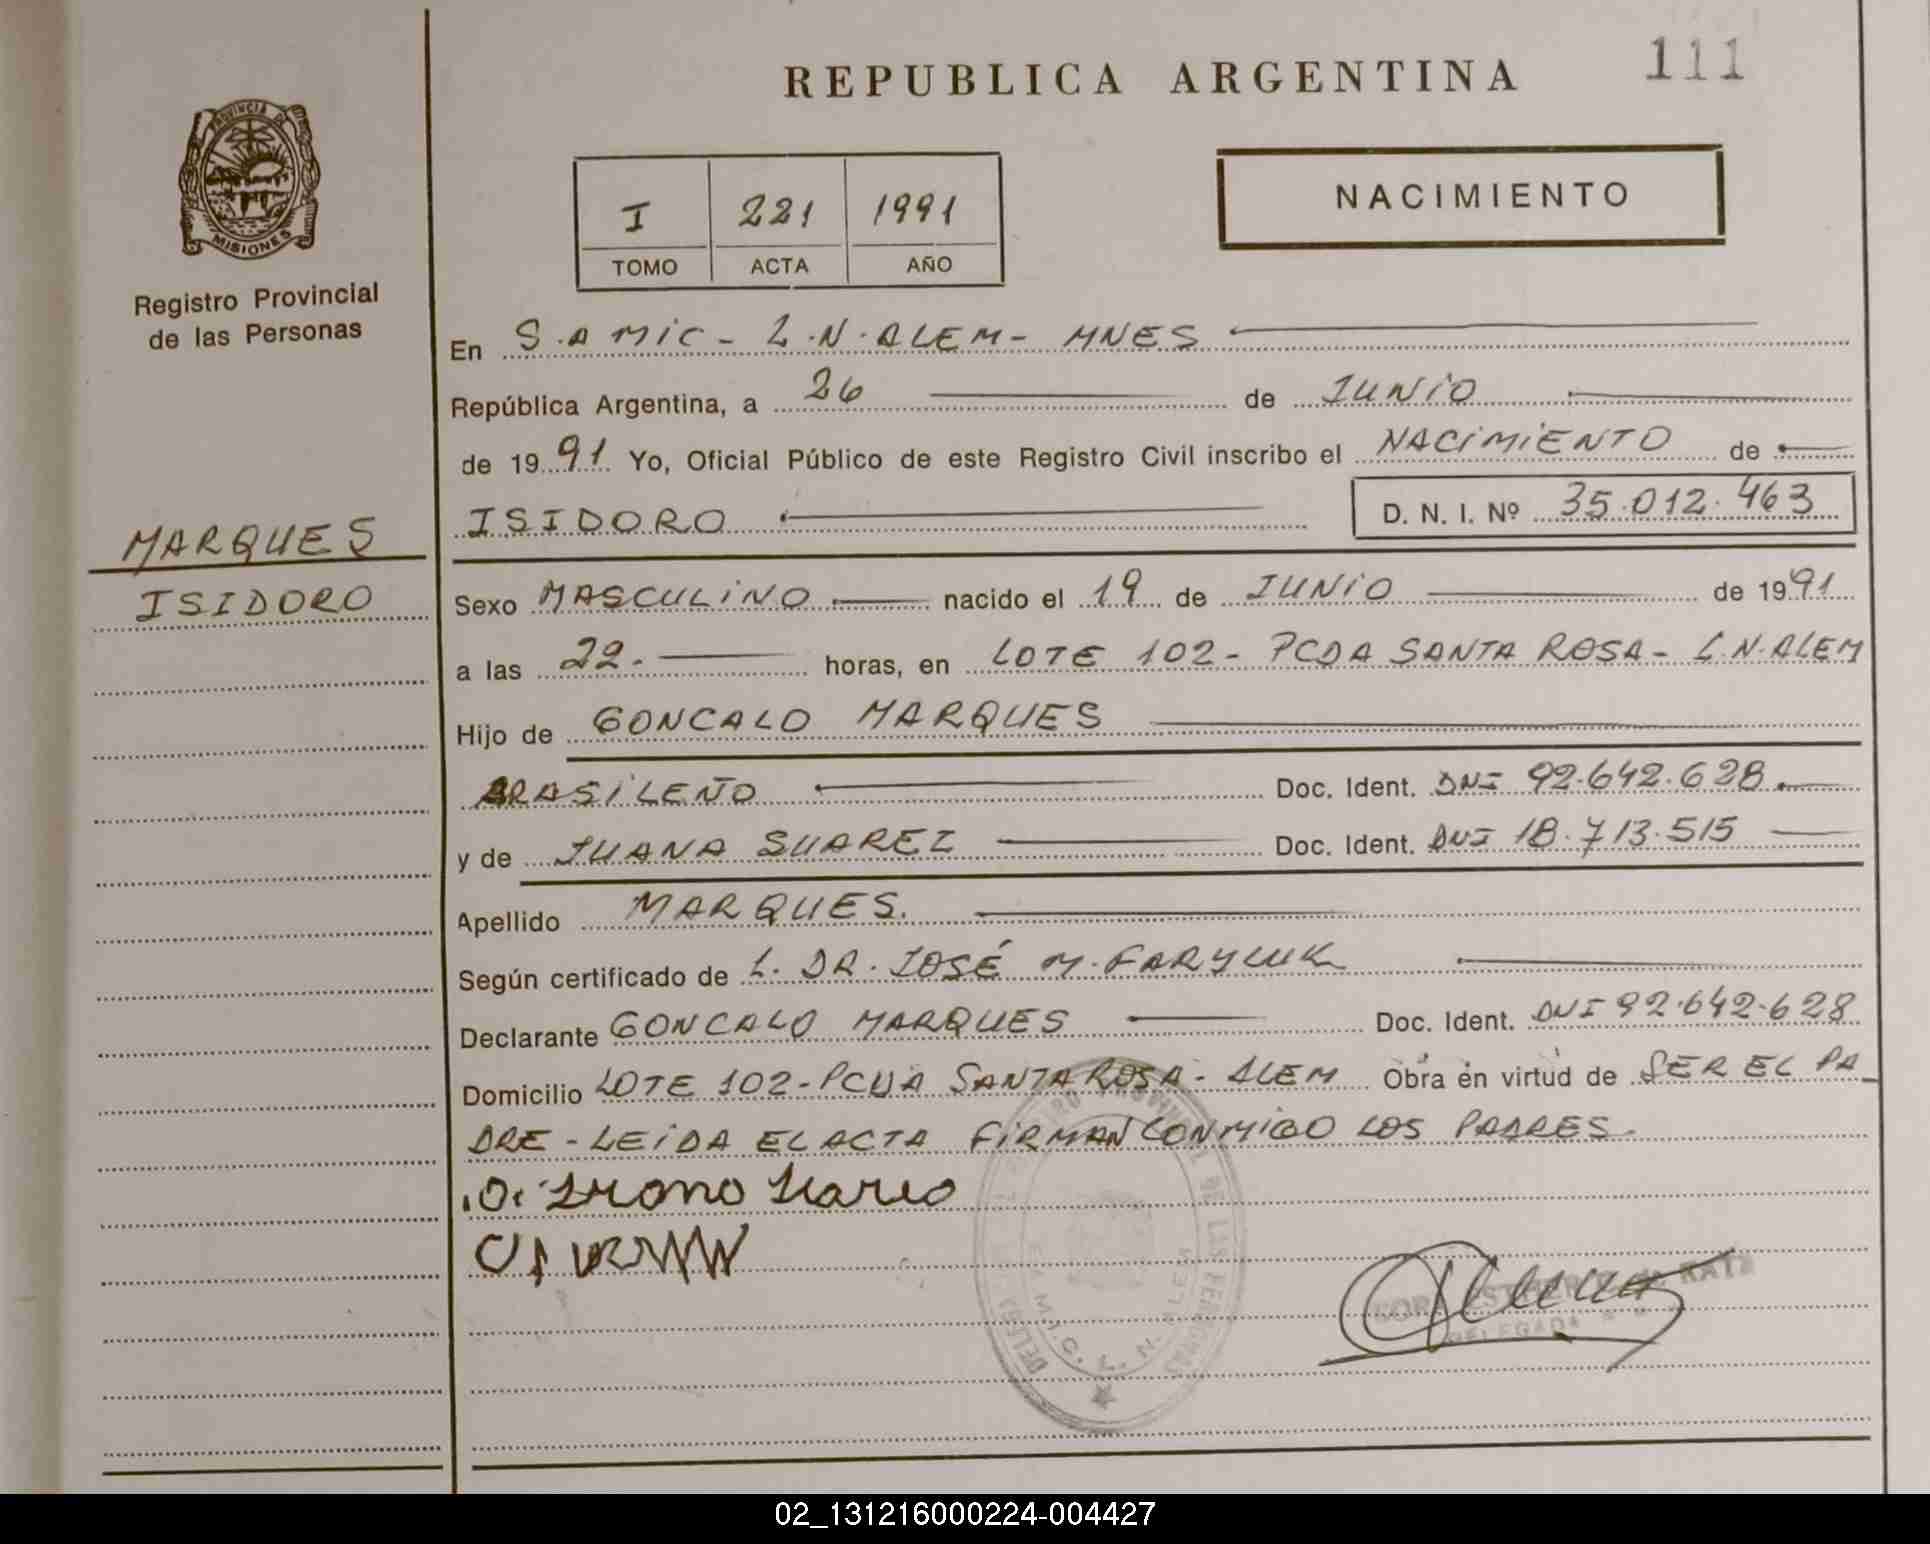 REPUBLICA ARGENTINA
111
PROVINCIA DE
MISIONES
Registro Provincial
de las Personas
I 221 1991
TOMO ACTA AÑO
NACIMIENTO
En S.A MIC - L.N.ALEM - MNES
República Argentina, a 26 de JUNIO
de 1991 Yo, Oficial Público de este Registro Civil inscribo el NACIMIENTO de
ISIDORO D. N. I. Nº 35.012.463
MARQUES
ISIDORO
Sexo MASCULINO nacido el 19 de JUNIO de 1991
a las 22.- horas, en LOTE 102 - PCDA SANTA ROSA - L.N.ALEM
Hijo de GONCALO MARQUES
BRASILEÑO Doc. Ident. DNI 92.642.628.
y de JUANA SUAREZ Doc. Ident. DNI 18.713.515
Apellido MARQUES.
Según certificado de L. DR. JOSÉ M. FARYLUK
Declarante GONCALO MARQUES Doc. Ident. DNI 92.642.628
Domicilio LOTE 102 - PCDA SANTA ROSA - ALEM Obra en virtud de SER EL PA_
DRE - LEIDA EL ACTA FIRMAN CONMIGO LOS PADRES.
DELEGADA
L. N. ALEM
02_131216000224-004427